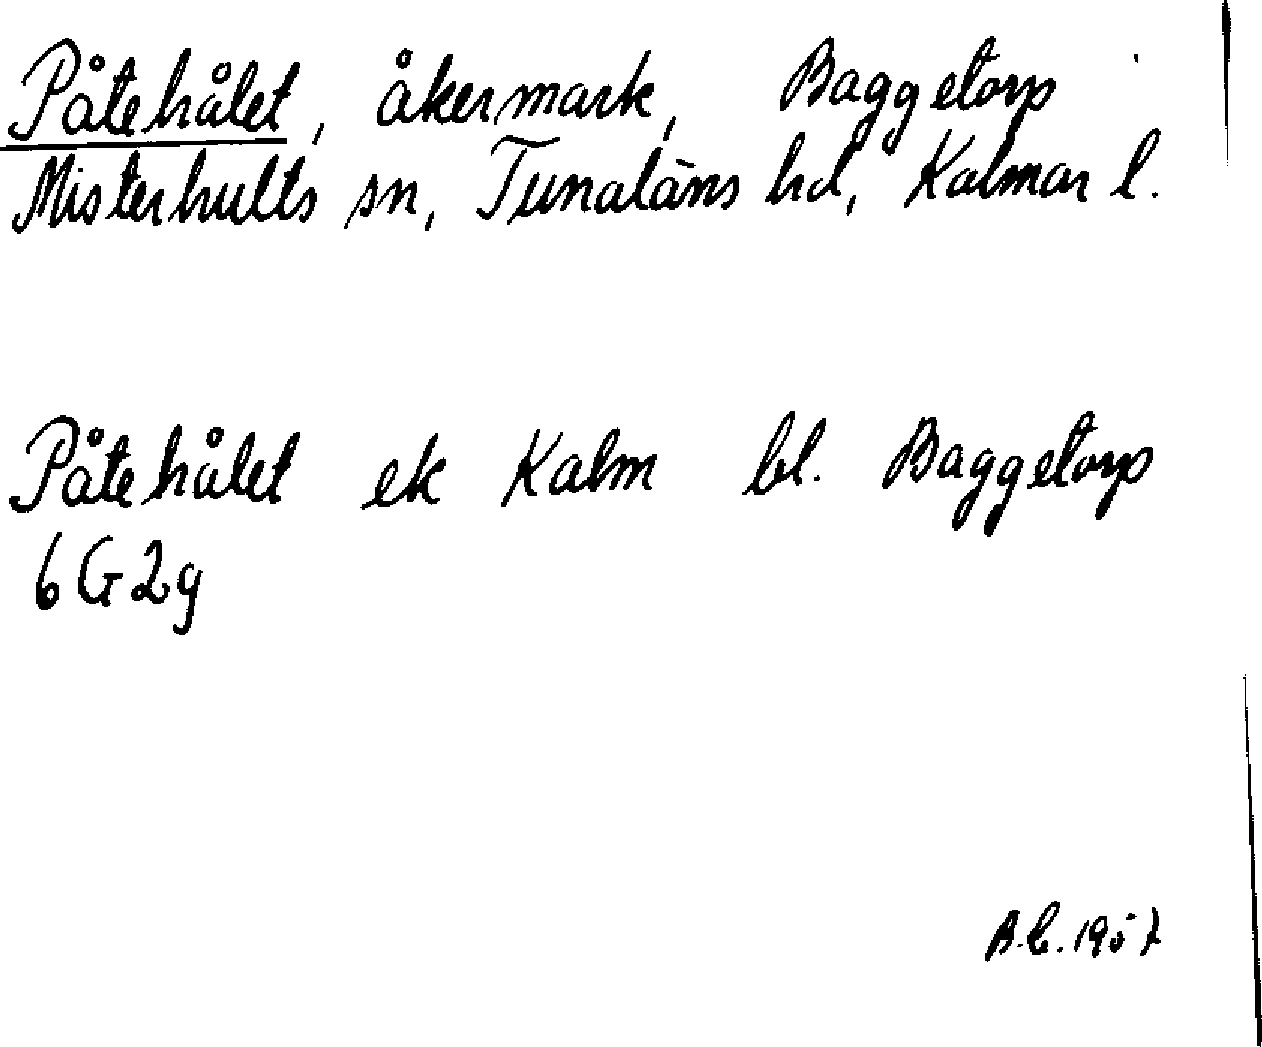 Påtehålet, åkermark, Baggetorp
Misterhults sn, Tunaläns hd, Kalmar l.
Påtehålet ek Kalm bl. Baggetorp
6G2g
1957